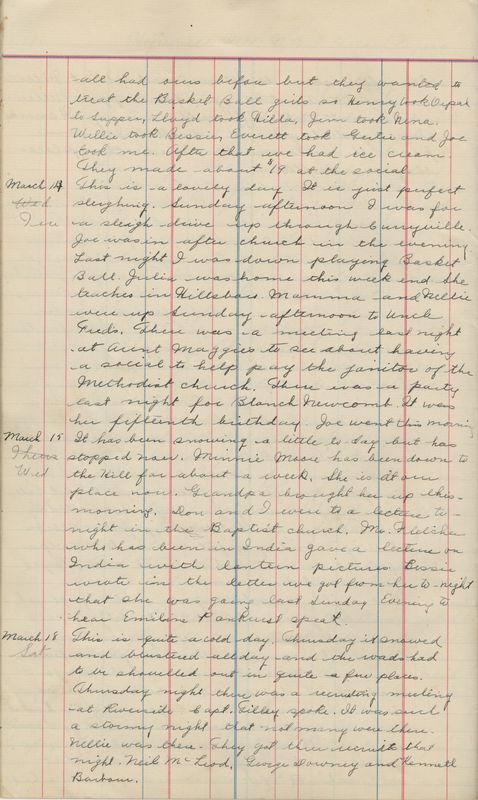 all had ours before but they wanted to
treat the Basket Ball girls so Henry took
to Supper, Lloyd took Hilda, Jim took Nina.
Willie took Bessie, Everett took Gertie and Joe
took me. After that we had ice cream.
They made about $19 at the social
March 14 This is a lovely day. It is just perfect
Wed sleighing. Sunday afternoon I was for
Tue a sleigh drive up through Curryville.
Joe was in after church in the evening.
Last night I was down playing Basket
Ball. Julia was home this week end. She
teaches in Hillsboro. Mamma and Nellie
were up Sunday afternoon to Uncle
Freds. There was a meeting last night
at Aunt Maggies to see about having
a social to help pay the janitor of the
Methodist church. There was a party
last night for Blanch Newcomb. It was
her fifteenth birthday. Joe went this morning
March 15 It has been snowing a little to day but has
Thurs stopped now. Minnie Moore has been down to
Wed the Hill for about a week. She is at our
place now. Grandpa brought her up this
morning. Don and I were to a lecture to-
night in the Baptist church. Mr. Fletcher
who has been in India gave a lecture on
India with lantern pictures. Bessie
wrote in the letter we got from her to-night
that she was going last Sunday Evening to
hear Emiline Pankurst speak.
March 18 This is quite a cold day. Thursday it snowed
Sat and blustred all day and the roads had
to be shovelled out in quite a few places.
Thursday night there was a recruiting meeting
at Riverside Capt. Tilley spoke. It was such
a stormy night that not many were there.
Nellie was there. They got three recruits that
night. Neil McLeod, George Downey and Kenneth
Barbour.